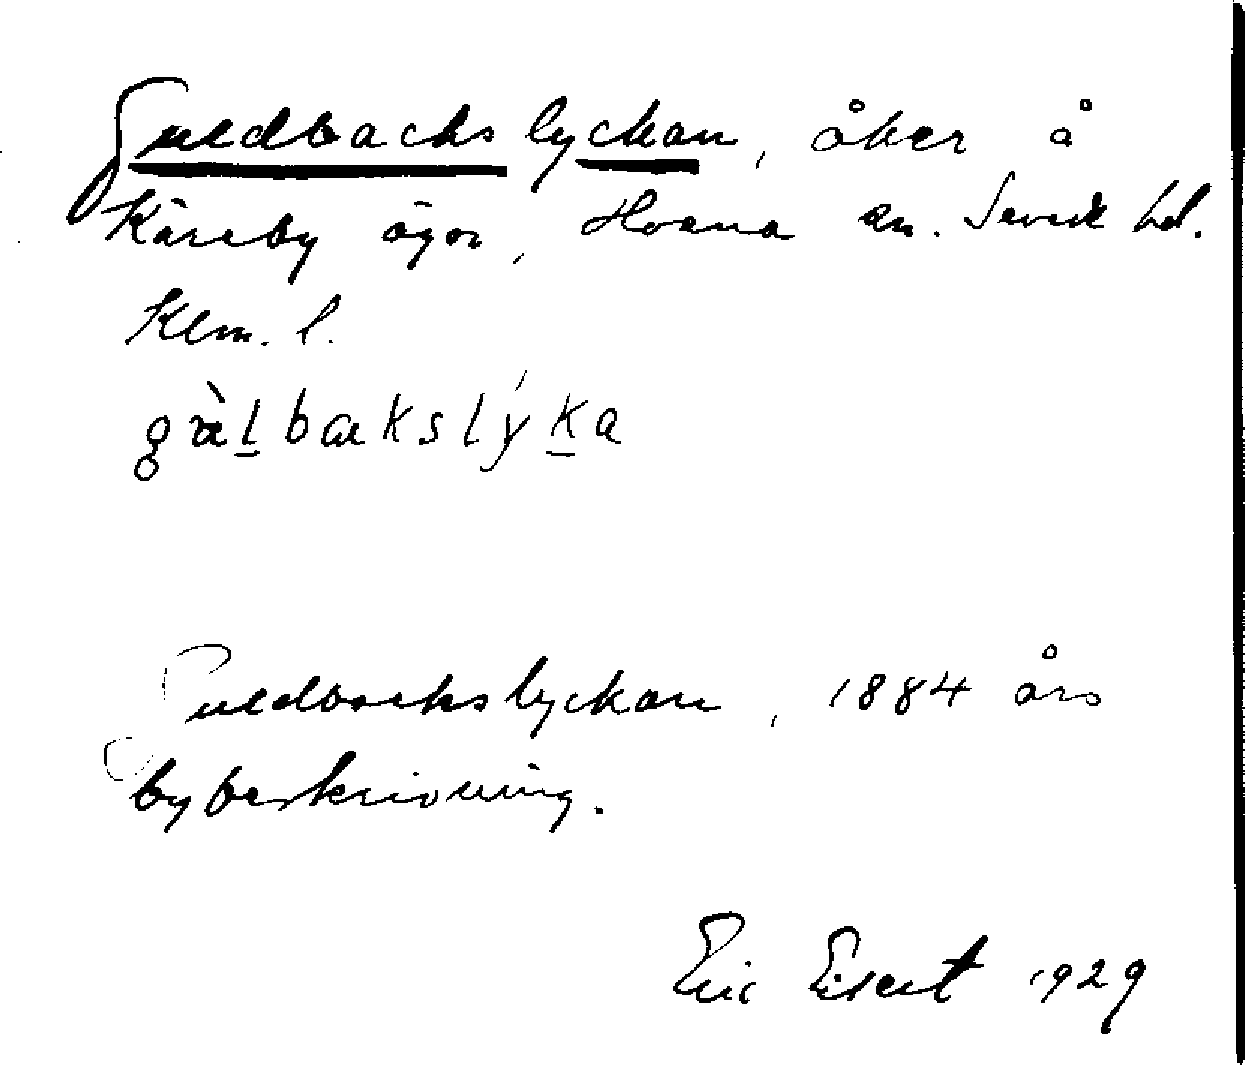 Guldbackslyckan, åker å
Käreby ägor, Hossna sn. Sevede hd.
Klm. l.
gàlbakslýka
Guldbackslyckan, 1884 års
bybeskrivning.
Eric Eisert 1929